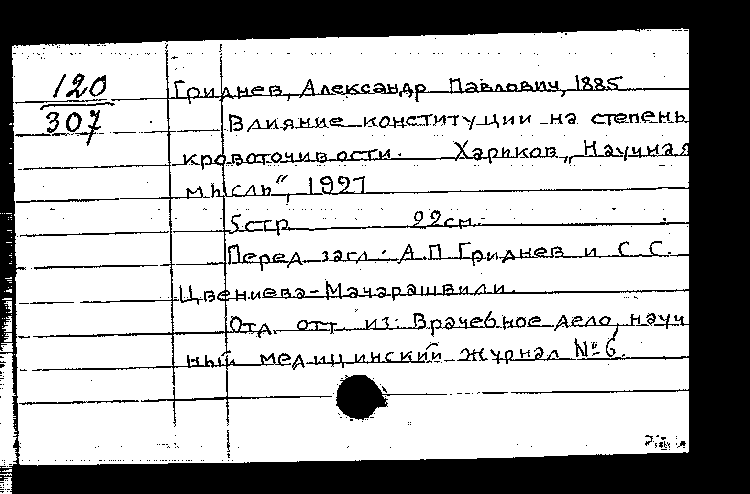 120
307
Гриднев, Александр Павлович, 1885
Влияние конституции на степень
кровоточивости. Харков „Научная
мысль", 1927
5стр 22см.
Перед загл.: А.П Гриднев и С. С.
Цвениева-Мачарашвили.
Отд. отт. из: Врачебное дело, науч
ный медицинский журнал №6.